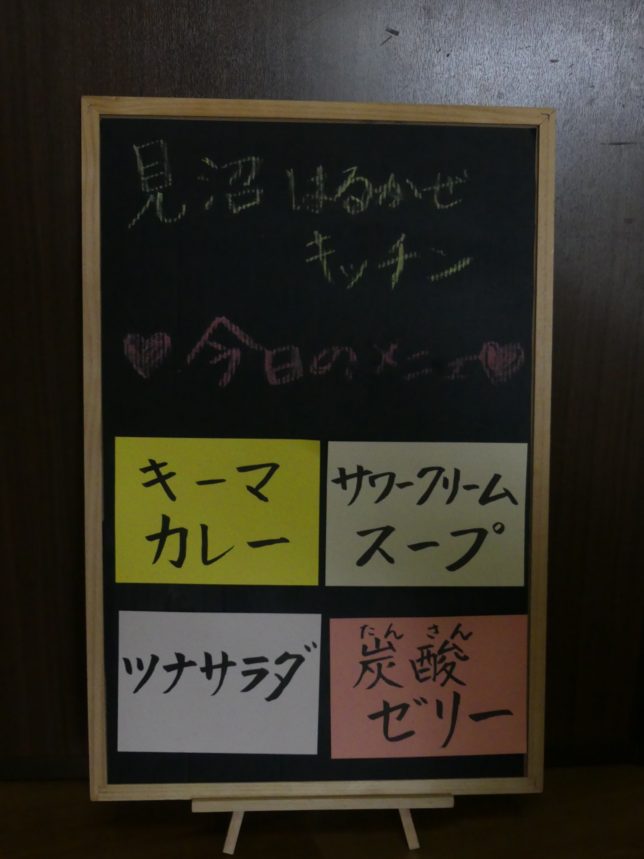 見沼 はるかぜ
キッチン
♥今日のメニュー♥
キーマ
カレー
サワークリーム
スープ
ツナサラダ
たん さん
炭酸
ゼリー